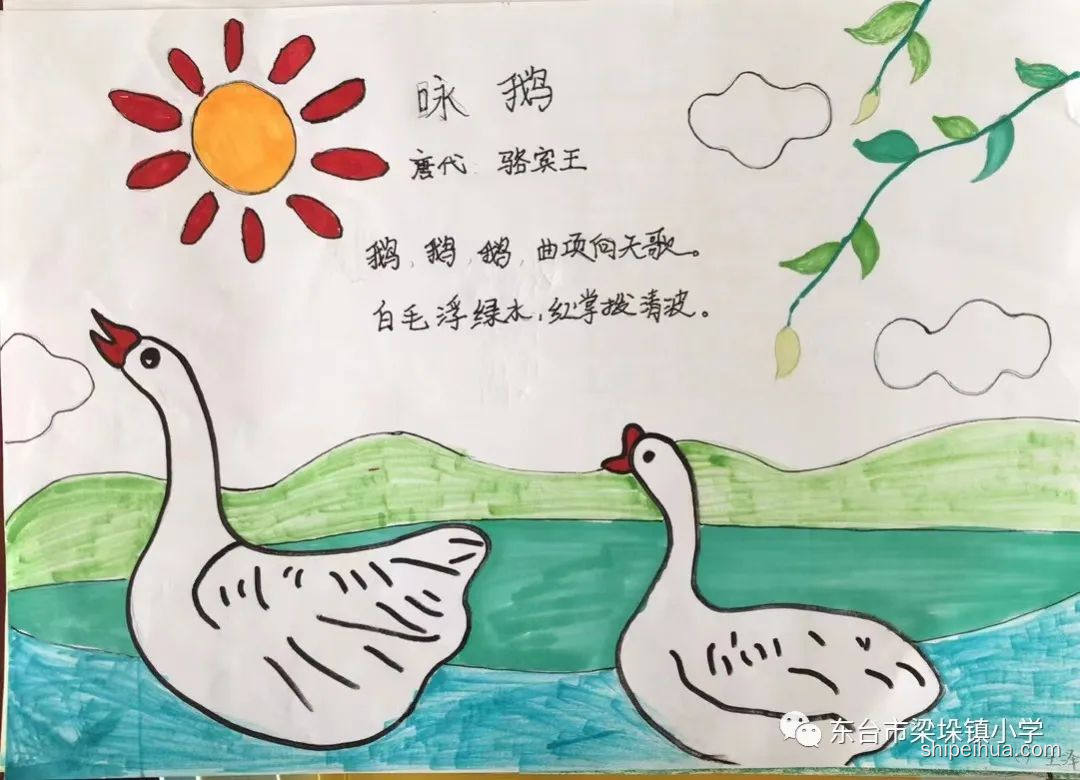 咏 鹅
唐代 骆宾王
鹅,鹅,鹅,曲项向天歌。
白毛浮绿水,红掌拨清波。
东台市梁垛镇小学
shipeihua.com